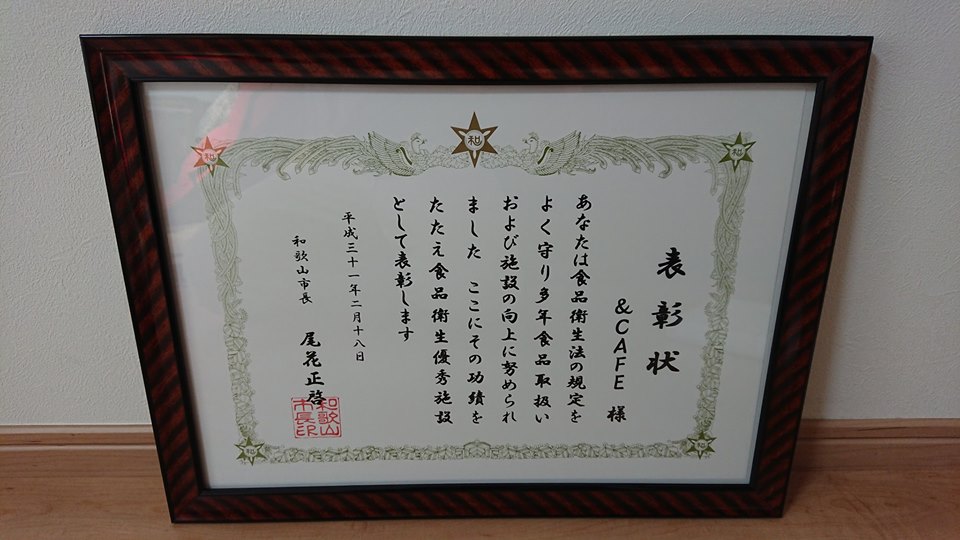 表彰状
&CAFE 様
あなたは食品衛生法の規定を
よく守り多年食品取扱い
および施設の向上に努められ
ました ここにその功績を
たたえ食品衛生優秀施設
として表彰します
平成三十一年二月十八日
和歌山市長 尾花正啓
和歌山
市長印
和
和
和
和
和